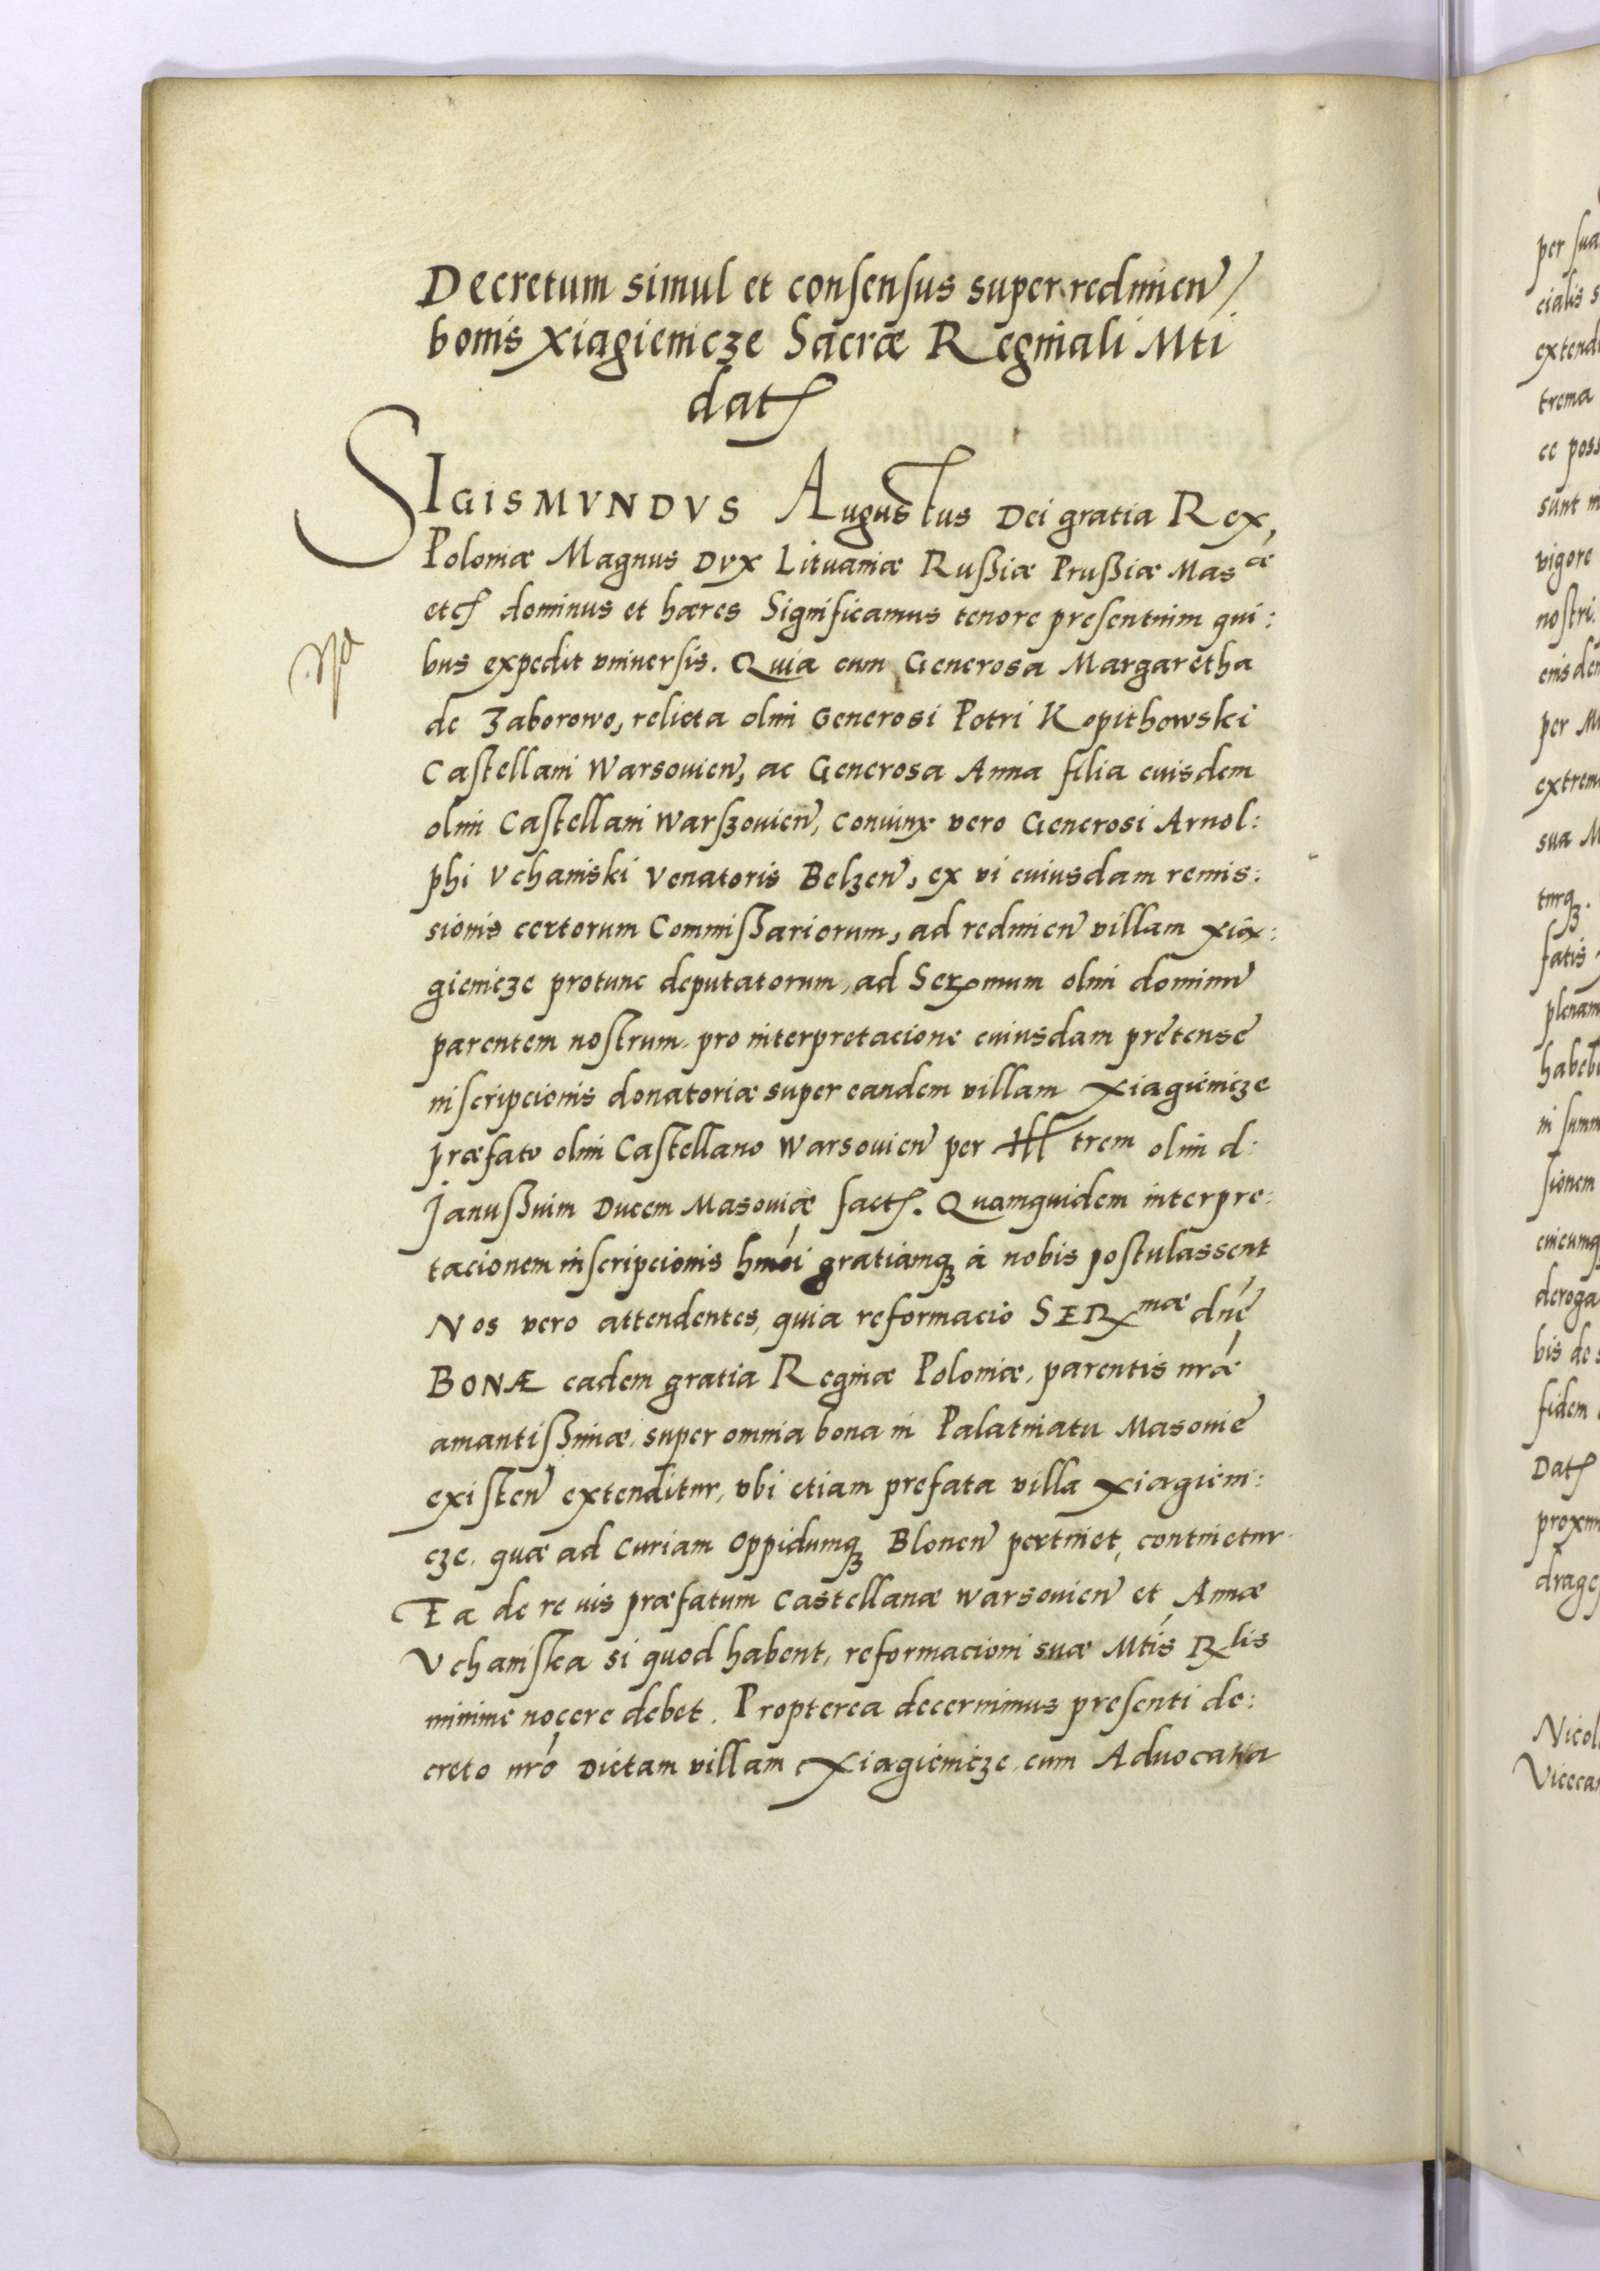 Decretum simul et consensus super redimen̄
bonis Xiagienicze Sacræ Reginali Mti
dat̄
SIGISMVNDVS Augustus Dei gratia Rex,
Poloniæ Magnus Dvx Lituaniæ Rußiæ Prußiæ Mas æ
etc̄ dominus et hæres Significamus tenore presentuim qui:
bus expedit vniuersis. Quia cum Generosa Margaretha
de Zaborowo, relicta olim Generosi Petri Kopithowski
Castellani Warsouien̄, ac Generosa Anna filia euisdem
olim Castellani Warszouien̄, Coniunx vero Generosi Arnol:
phi Vchanski Venatoris Belzen̄, ex vi cuiusdam remis:
sionis certorum Commißariorum, ad redimien̄ villam Xia:
gienicze protunc deputatorum, ad Serxmum olim dominū
parentem nostrum. pro interpretacione cuiusdam pretense
inscripcionis donatoriæ super eandem villam Xiagienicze
præfato olim Castellano Warsouien̄ per Ill trem olim d:
Janußuim Ducem Masouiæ fact̄. Quamquidem interpre:
tacionem inscripcionis hmói gratiamqȝ à nobis postulassent
Nos vero attendentes, quia reformacio SERxmæ dn̄e
BONÆ eadem gratia Reginæ Poloniæ, parentis nrǽ
amantißimæ, super omnia bona in Palatinatu Masouie
existen̄ extenditur, vbi etiam prefata villa Xiagieni:
cze, quæ ad Curiam Oppidumqȝ Blonen̄ pertinet, continetur
Ea de re uis præfatum Castellanæ Warsouien̄ et Annæ
Vchanska si quod habent, reformacioni suæ Mtis Rlis
minime nocere debet. Propterea decernimus presenti de:
creto nró Dictam villam Xiagienicze, cum Aduocatia
per sua
cialis s
extend
trema
ce poss
sunt
vigore
nostri.
eisdem
per
extrem
sua M
turqȝ.
fatis
plenam
habeb
in summ
sionem
cuicumqȝ
deroga
bis de
fidem
Dat̄
proxim
drages
Nicol
Viceca